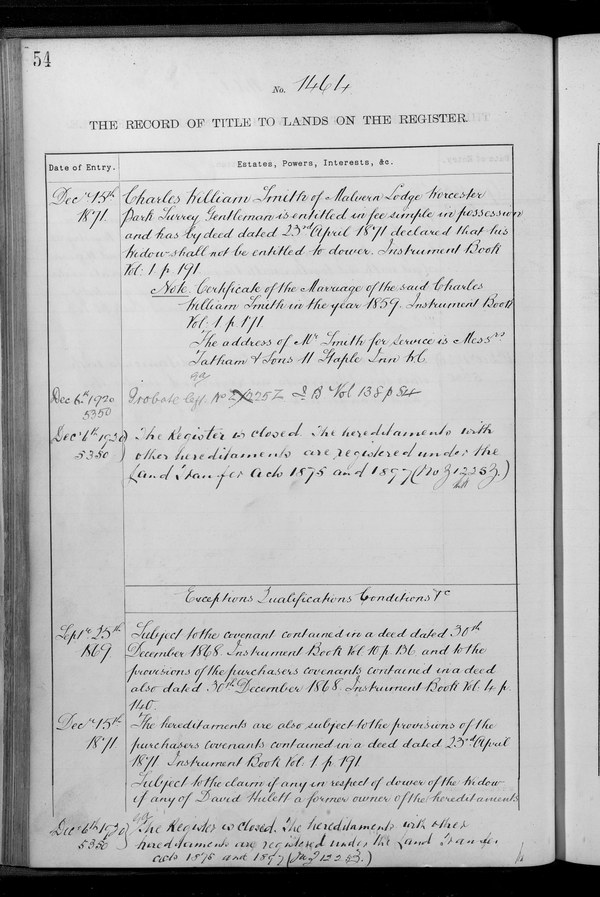 54
No. 1464
THE RECORD OF TITLE TO LANDS ON THE REGISTER.
Date of Entry.
Estates, Powers, Interests, &c.
Decr 15th
1871.
Charles William Smith of Malvern Lodge Worcester
Park Surrey Gentleman is entitled in fee simple in possession
and has by deed dated 23rd April 1871 declared that his
widow shall not be entitled to dower. Instrument Book
Vol: 1 p 191.
Note. Certificate of the Marriage of the said Charles
William Smith in the year 1859. Instrument Book
Vol: 1 p 191
The address of Mr Smith for service is Messrs
Tatham & Sons 11 Staple Inn WC
Dec 6th 1920
5350
Probate I B Vol 138 p 84
Dec 6th 1920
5350
The Register is closed. The hereditaments with
other hereditaments are registered under the
Land Transfer Acts 1875 and 1897 (No
Exceptions Qualifications Conditions &c
Septr 25th
1869
Subject to the covenant contained in a deed dated 30th
December 1868. Instrument Book Vol 10 p. 136 and to the
provisions of the purchasers covenants contained in a deed
also dated 30th December 1868. Instrument Book Vol: 4 p.
140.
Decr 15th
1871
The hereditaments are also subject to the provisions of the
purchasers covenants contained in a deed dated 23rd April
1871. Instrument Book Vol: 1 p. 191
Subject to the claim if any in respect of dower of the widow
if any of David Hulett a former owner of the hereditaments
Dec 6th 1920
5350
The Register is closed. The hereditaments with other
hereditaments are registered under the Land Transfer
acts 1875 and 1897